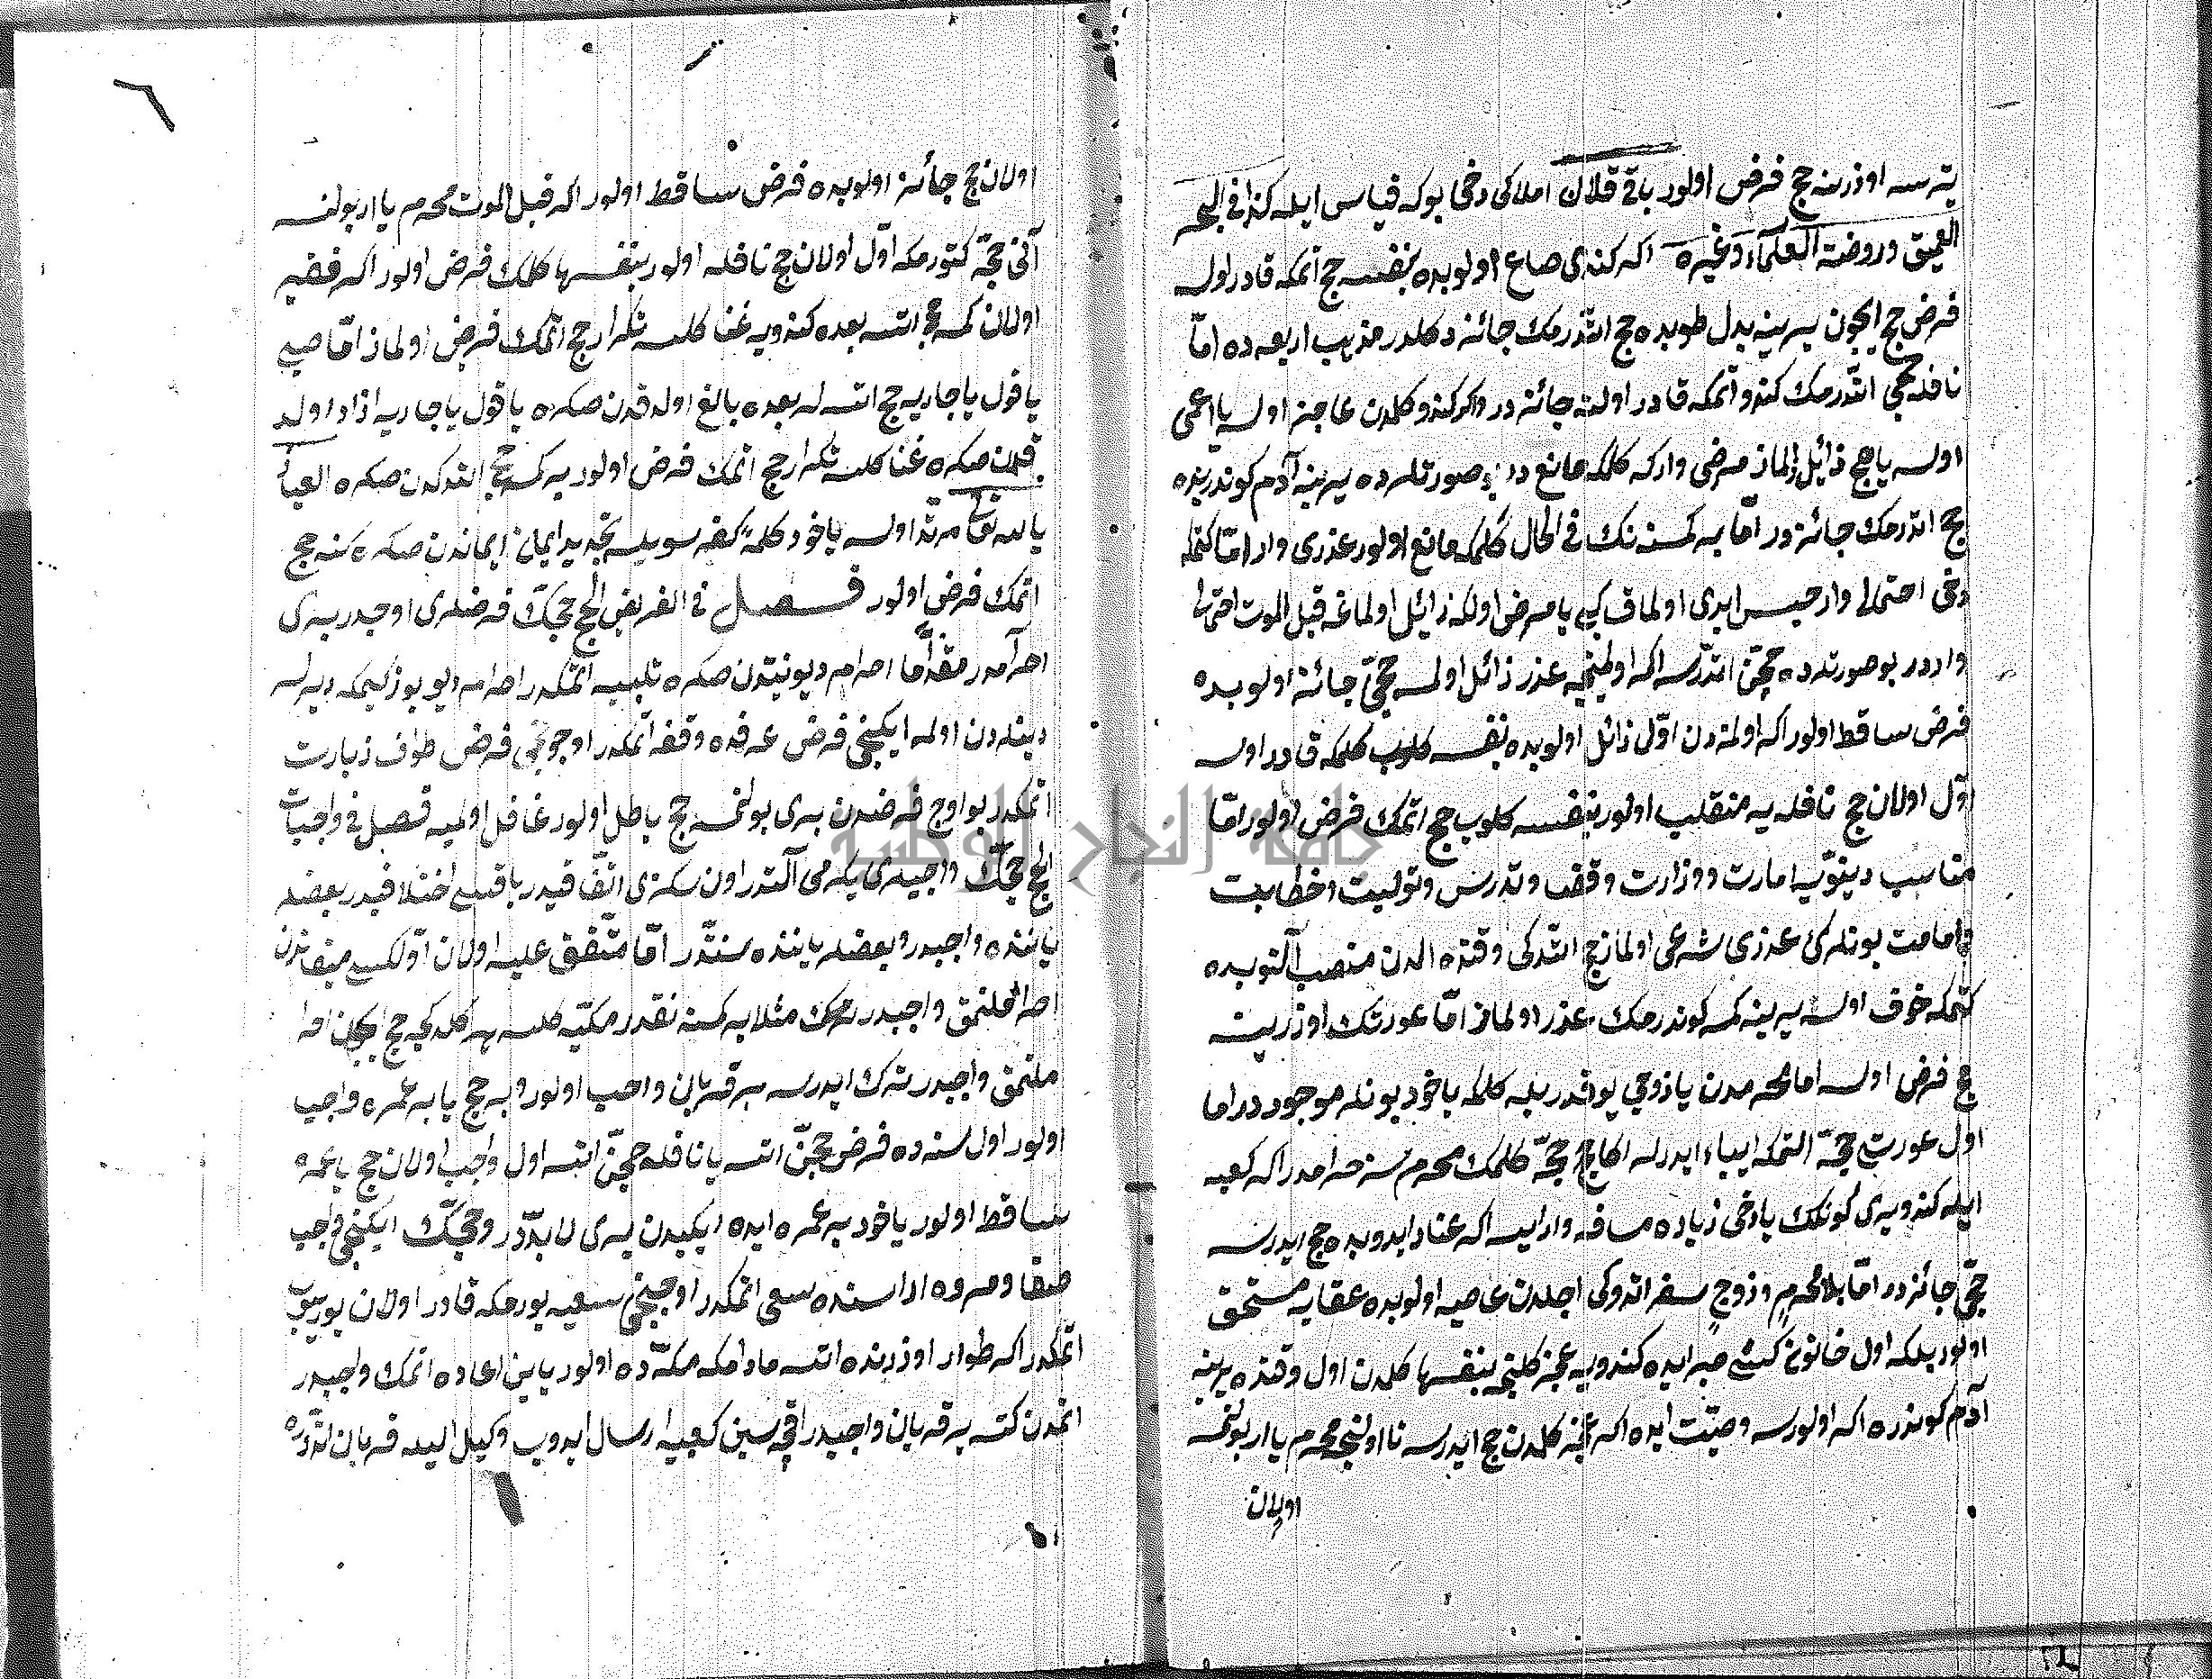 يته رسه اوزرينه حج فرض اولور باقى قلان املاكى دخى بوكه قياس ايله كذا فى البحر
العميق وروضة العلماء وغيره اكر كندى صاغ اولوبده بنفسه حج اتمكه قادر اوله
فرض حج ايچون يرينه بدل طوبده حج اتدرمك جائز دكلدر مذهب اربعه ده امّا
نافله حجى اتدرمك كندو اتمكه قادر اولنه جائز در واكر كندو كلمدن عاجز اوله يا اعمى
اوله يا هيچ زائل اولماز مرضى وار كه كلمكه مانع در بو صورتلرده يرينه آدم كوندريده
حج اتدرمك جائز در امّا بر كمسنه نك فى الحال كلمكه مانع اولور عذرى وار امّا كتمكه
دخى احتمالى وار حبس ابدى اولماق كبى يا مرض اولكه زائل اولماغه قبل الموت احتمالى
وار در بو صورتده حجّن اتدرسه اكر اولينجيه عذر زائل اولمسه حجّى جائز اولوبده
فرض ساقط اولور اكر اولمزدن اوّل زائل اولوبده بنفسه كلوب كلمكه قادر اوله
اوّل اولان حج نافله يه منقلب اولور بنفسه كلوب حج اتمك فرض اولور امّا
مناسب دينّويه امارت ووزارت وقضا وتدرس وتوليت وخطابت
وامامت بونلركى عذرى شرعى اولماز حج اتدكى وقتده الدن منصب آلنوبده
كتمكه خوف اوله يرينه كمسه كوندرمك عذر اولماز امّا عورتك اوزرينه
حج فرض اوله اما محرمدن يا زوجى يوقدر بيله كلمكه ياخود بونلر موجود در اما
اول عورتى حجّه التمكه ابباء ايدرلر اكا حجّه كلمك محرم سز حرامدر اكر كعبه
ايله كندو يرى كونلك يا دخى زياده مسافه وار ايسه اكر عناد ايدوبده حج ايدرسه
حجّى جائز در امّا بلا محرم وزوج سفر اتدوكى اجلدن عاصيه اولوبده عقابه مستحق
اولور بلكه اول خاتون كشى صبر ايده كندويه عجز كلنجه بنفسها كلمدن اول وقتده يرينه
آدم كوندره اكر اولورسه وصيّت ايده اكر عجز كلمدن حج ايدرسه تا اولنجه محرم يا ار بولنمسه
اولان
٦
اولان حج جائز اولوبده فرض ساقط اولور اكر قبل الموت محرم يا ار بولنسه
آنى حجّه كتورمكه اوّل اولان حج نافله اولور بنفسها كلمك فرض اولور اكر فقير
اولان كمسه حج اتسه بعده كندويه غنا كلسه تكرار حج اتمك فرض اولماز امّا صبى
يا قول يا جاريه حج اتسه لر بعده بالغ اولدقدن صكره يا قول يا جاريه ازاد اولد
قدن صكره غنا كلسه تكرار حج اتمك فرض اولور بر كمسه حج اتدكدن صكره العياذ
بالله تعا مرتد اولسه ياخود كلمهٔ كفر سويلسه تجديد ايمان ايماندن صكره كنه حج
اتمك فرض اولور فصل فى الفريض الحج حجك فرضلرى اوچدر برى
احرامدر مقدّما احرام ديو نيتدن صكره تلبيه اتمكدر احرام ديو بوز كيمكه ديرلر
دينلردن اولمه ايكنجى فرض عرفده وقفه اتمكدر اوچونجى فرض طواف زيارت
اتمكدر بو اوچ فرضدن برى بولنمسه حج باطل اولور غافل اولميه فصل فى واجبات
الحج حجك واجبلرى يكرمى آلتدر اون سكزى اتفاقيدر باقيسى اختلافيدر بعضلر
ياننده واجبدر وبعضلر ياننده سنتدر امّا متفق عليه اولان اوّلكسى ميقاتدن
احراملنمق واجبدر تمك مثلا بر كمسه نقدر مكيّه كلسه هر كلدكچه حج ايچون احرا
ملنمق واجبدر ترك ايدرسه بر قربان واجب اولور وبر حج يا بر عمره واجب
اولور اول سنه ده فرض حجّن اتسه يا نافله حجّن اتسه اول واجب اولان حج يا عمره
ساقط اولور ياخود بر عمره ايده ايكيدن برى لا بدّدر وحجّك ايكنجى واجب
صفا ومروه اراسنده سعى اتمكدر اوچنجى سعيه يورمكه قادر اولان يورييوب
اتمكدر اكر طوار اوزرنده اتسه مادامكه مكّه ده اولور ياين اعاده اتمك واجبدر
اتمدن كتسه بر قربان واجبدر اقچه سين كعبيه ارسال ايدوب وكيل اليله قربان اتدره